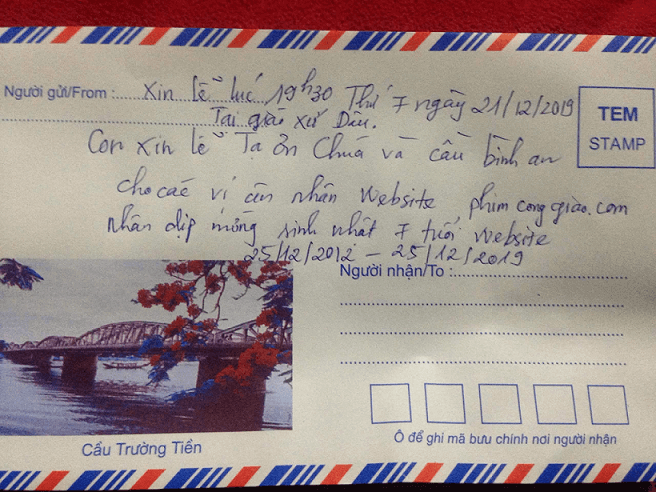 Người gửi/From : Xin lễ lúc 19h30 Thứ 7 ngày 21/12/2019
Tại giáo xứ Dầu.
TEM
STAMP
Con xin lễ Tạ ơn Chúa và cầu bình an
cho các vị ân nhân Website phimconggiao.com
nhân dịp mừng sinh nhật 7 tuổi Website
25/12/2012 - 25/12/2019
Người nhận/To :
Cầu Trường Tiền
Ô để ghi mã bưu chính nơi người nhận